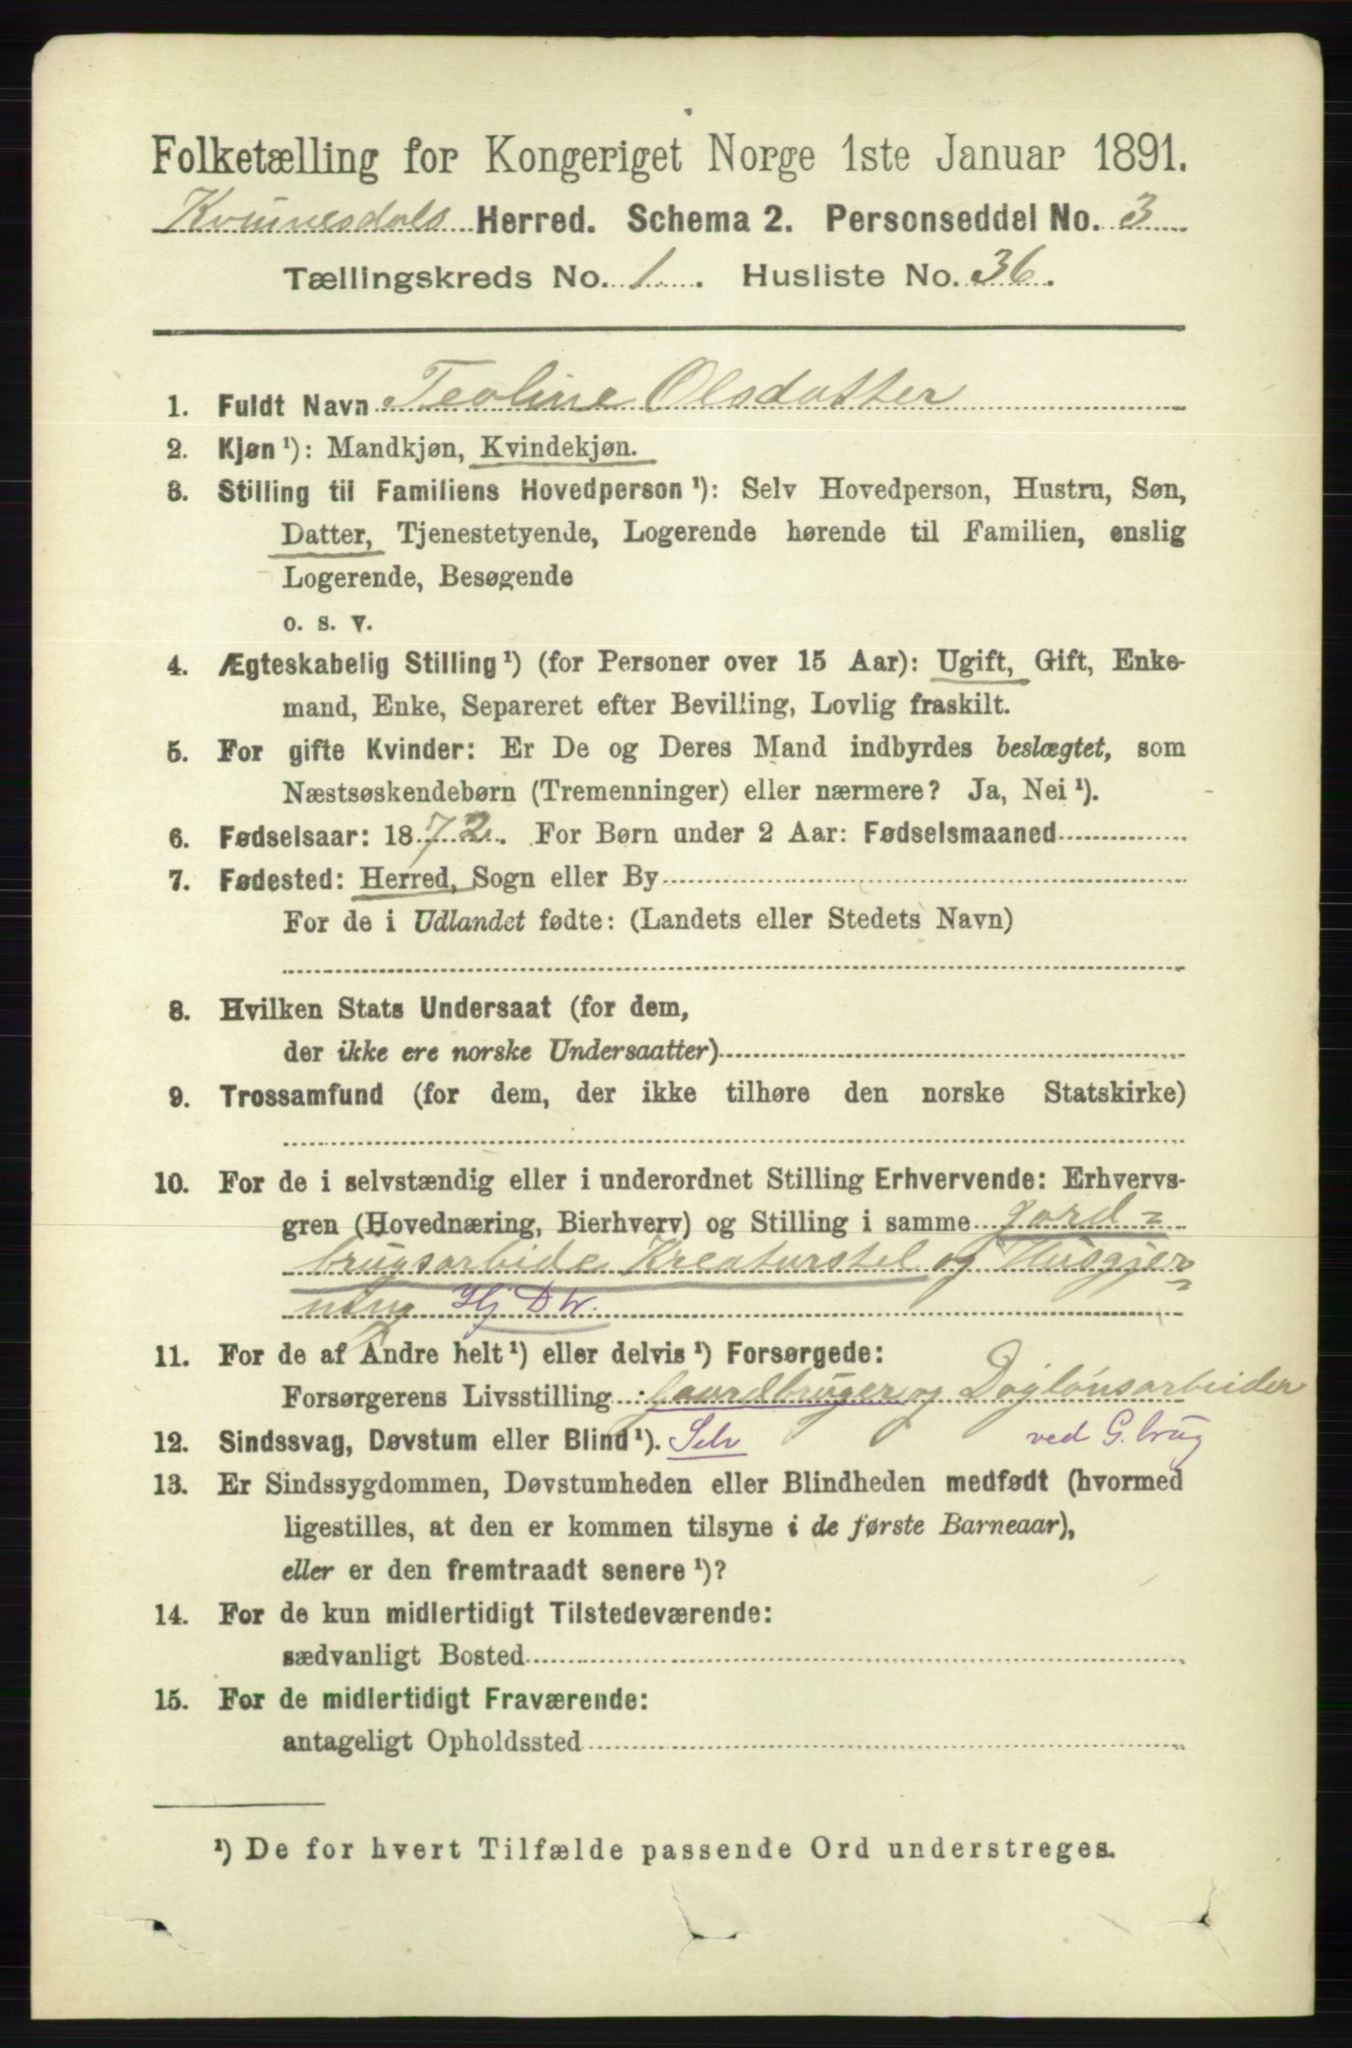 Folketælling for Kongeriget Norge 1ste Januar 1891.
Kvinnesdals Herred. Schema 2. Personseddel No. 3
Tællingskreds No. 1. Husliste No. 36.
1. Fuldt Navn Teoline Olsdatter
2. Kjøn¹): Mandkjøn, Kvindekjøn.
3. Stilling til Familiens Hovedperson¹): Selv Hovedperson, Hustru, Søn,
Datter, Tjenestetyende, Logerende hørende til Familien, enslig
Logerende, Besøgende
o. s. v.
4. Ægteskabelig Stilling¹) (for Personer over 15 Aar): Ugift, Gift, Enke-
mand, Enke, Separeret efter Bevilling, Lovlig fraskilt.
5. For gifte Kvinder: Er De og Deres Mand indbyrdes beslægtet, som
Næstsøskendebørn (Tremenninger) eller nærmere? Ja, Nei¹).
6. Fødselsaar: 1872. For Børn under 2 Aar: Fødselsmaaned
7. Fødested: Herred, Sogn eller By
For de i Udlandet fødte: (Landets eller Stedets Navn)
8. Hvilken Stats Undersaat (for dem,
der ikke ere norske Undersaatter)
9. Trossamfund (for dem, der ikke tilhøre den norske Statskirke)
10. For de i selvstændig eller i underordnet Stilling Erhvervende: Erhvervs-
gren (Hovednæring, Bierhverv) og Stilling i samme gard-
brugsarbide Kreaturstel og Husgjer-
ning Hj D tr.
11. For de af Andre helt¹) eller delvis¹) Forsørgede:
Forsørgerens Livsstilling: Gaardbruger og Daglønsarbeider
12. Sindssvag, Døvstum eller Blind¹). Selv ved G. brug
13. Er Sindssygdommen, Døvstumheden eller Blindheden medfødt (hvormed
ligestilles, at den er kommen tilsyne i de første Barneaar),
eller er den fremtraadt senere¹)?
14. For de kun midlertidigt Tilstedeværende:
sædvanligt Bosted
15. For de midlertidigt Fraværende:
antageligt Opholdssted
¹) De for hvert Tilfælde passende Ord understreges.